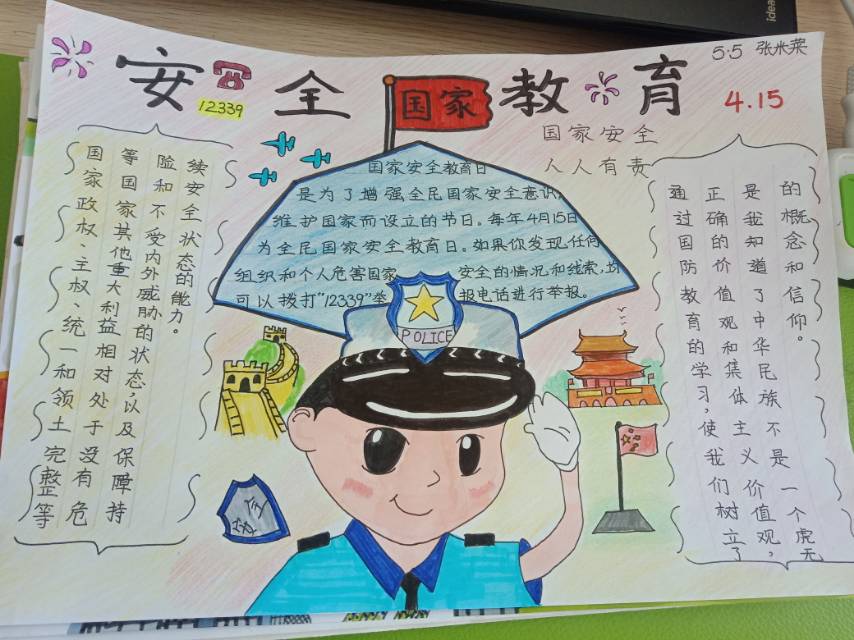 5·5 张米
安全国家教育
12339
4.15
国家安全
人人有责
国家安全教育日
是为了增强全民国家安全意识,
维护国家而设立的节日。每年4月15日
为全民国家安全教育日。如果你发现任何
组织和个人危害国家安全的情况和线索,均
可以拨打"12339"举报电话进行举报。
POLICE
国家政权、主权、统一和领土完整等
等国家其他重大利益相对处于没有危
险和不受内外威胁的状态,以及保障持
续安全状态的能力。
通过国防教育的学习,使我们树立了
正确的价值观和集体主义价值观,
是我知道了中华民族不是一个虚无
的概念和信仰。
安全
idea